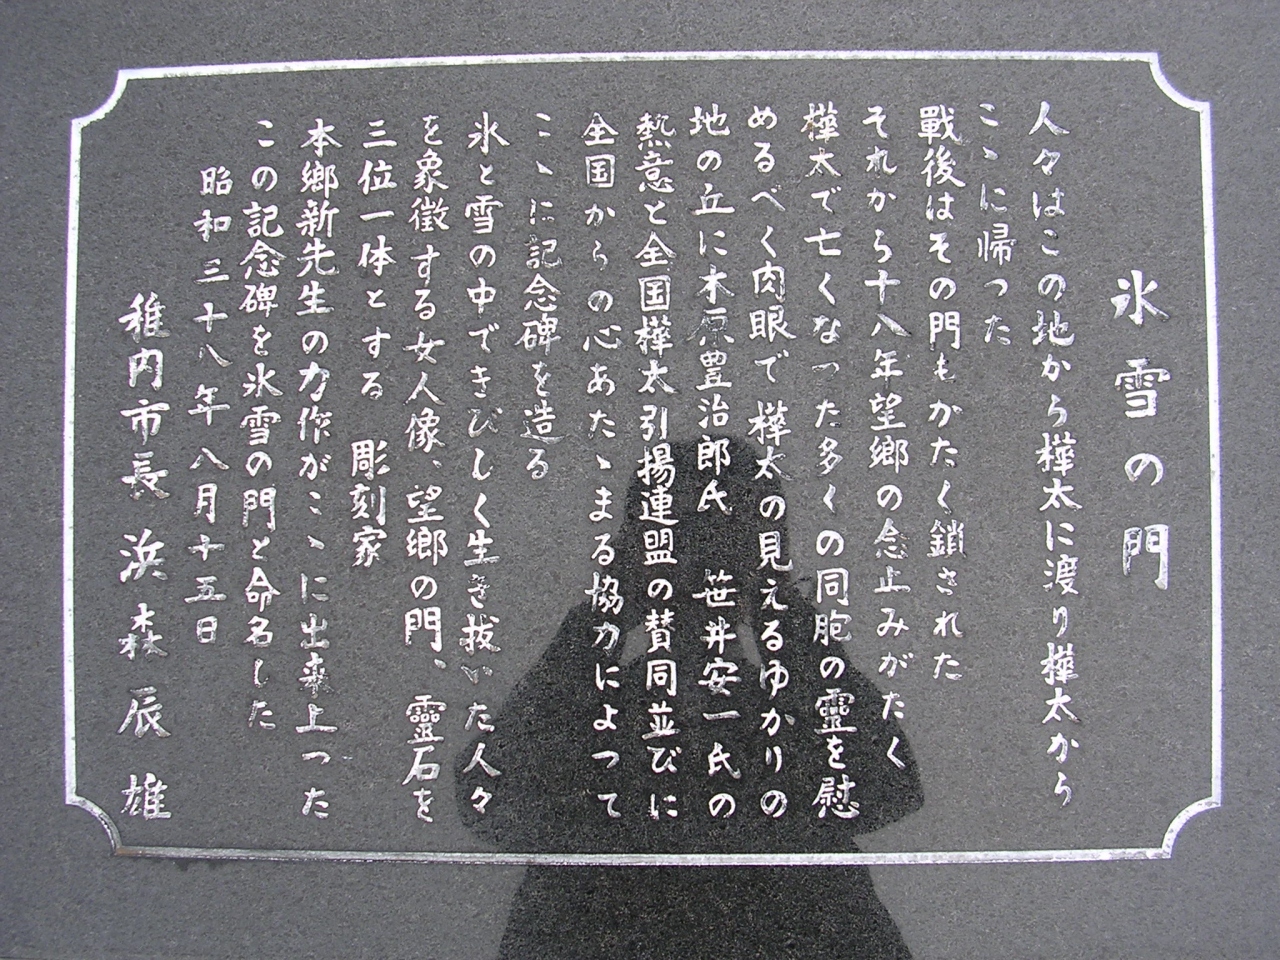 氷雪の門
人々はこの地から樺太に渡り樺太から
こゝに帰った
戰後はその門もかたく鎖された
それから十八年望郷の念止みがたく
樺太で亡くなった多くの同胞の靈を慰
めるべく肉眼で樺太の見えるゆかりの
地の丘に木原豊治郎氏 笹井安一氏の
熱意と全国樺太引揚連盟の賛同並びに
全国からの心あたゝまる協力によつて
こゝに記念碑を造る
氷と雪の中できびしく生き抜いた人々
を象徴する女人像、望郷の門、靈石を
三位一体とする 彫刻家
本郷新先生の力作がこゝに出来上つた
この記念碑を氷雪の門と命名した
昭和三十八年八月十五日
稚内市長 浜森辰雄